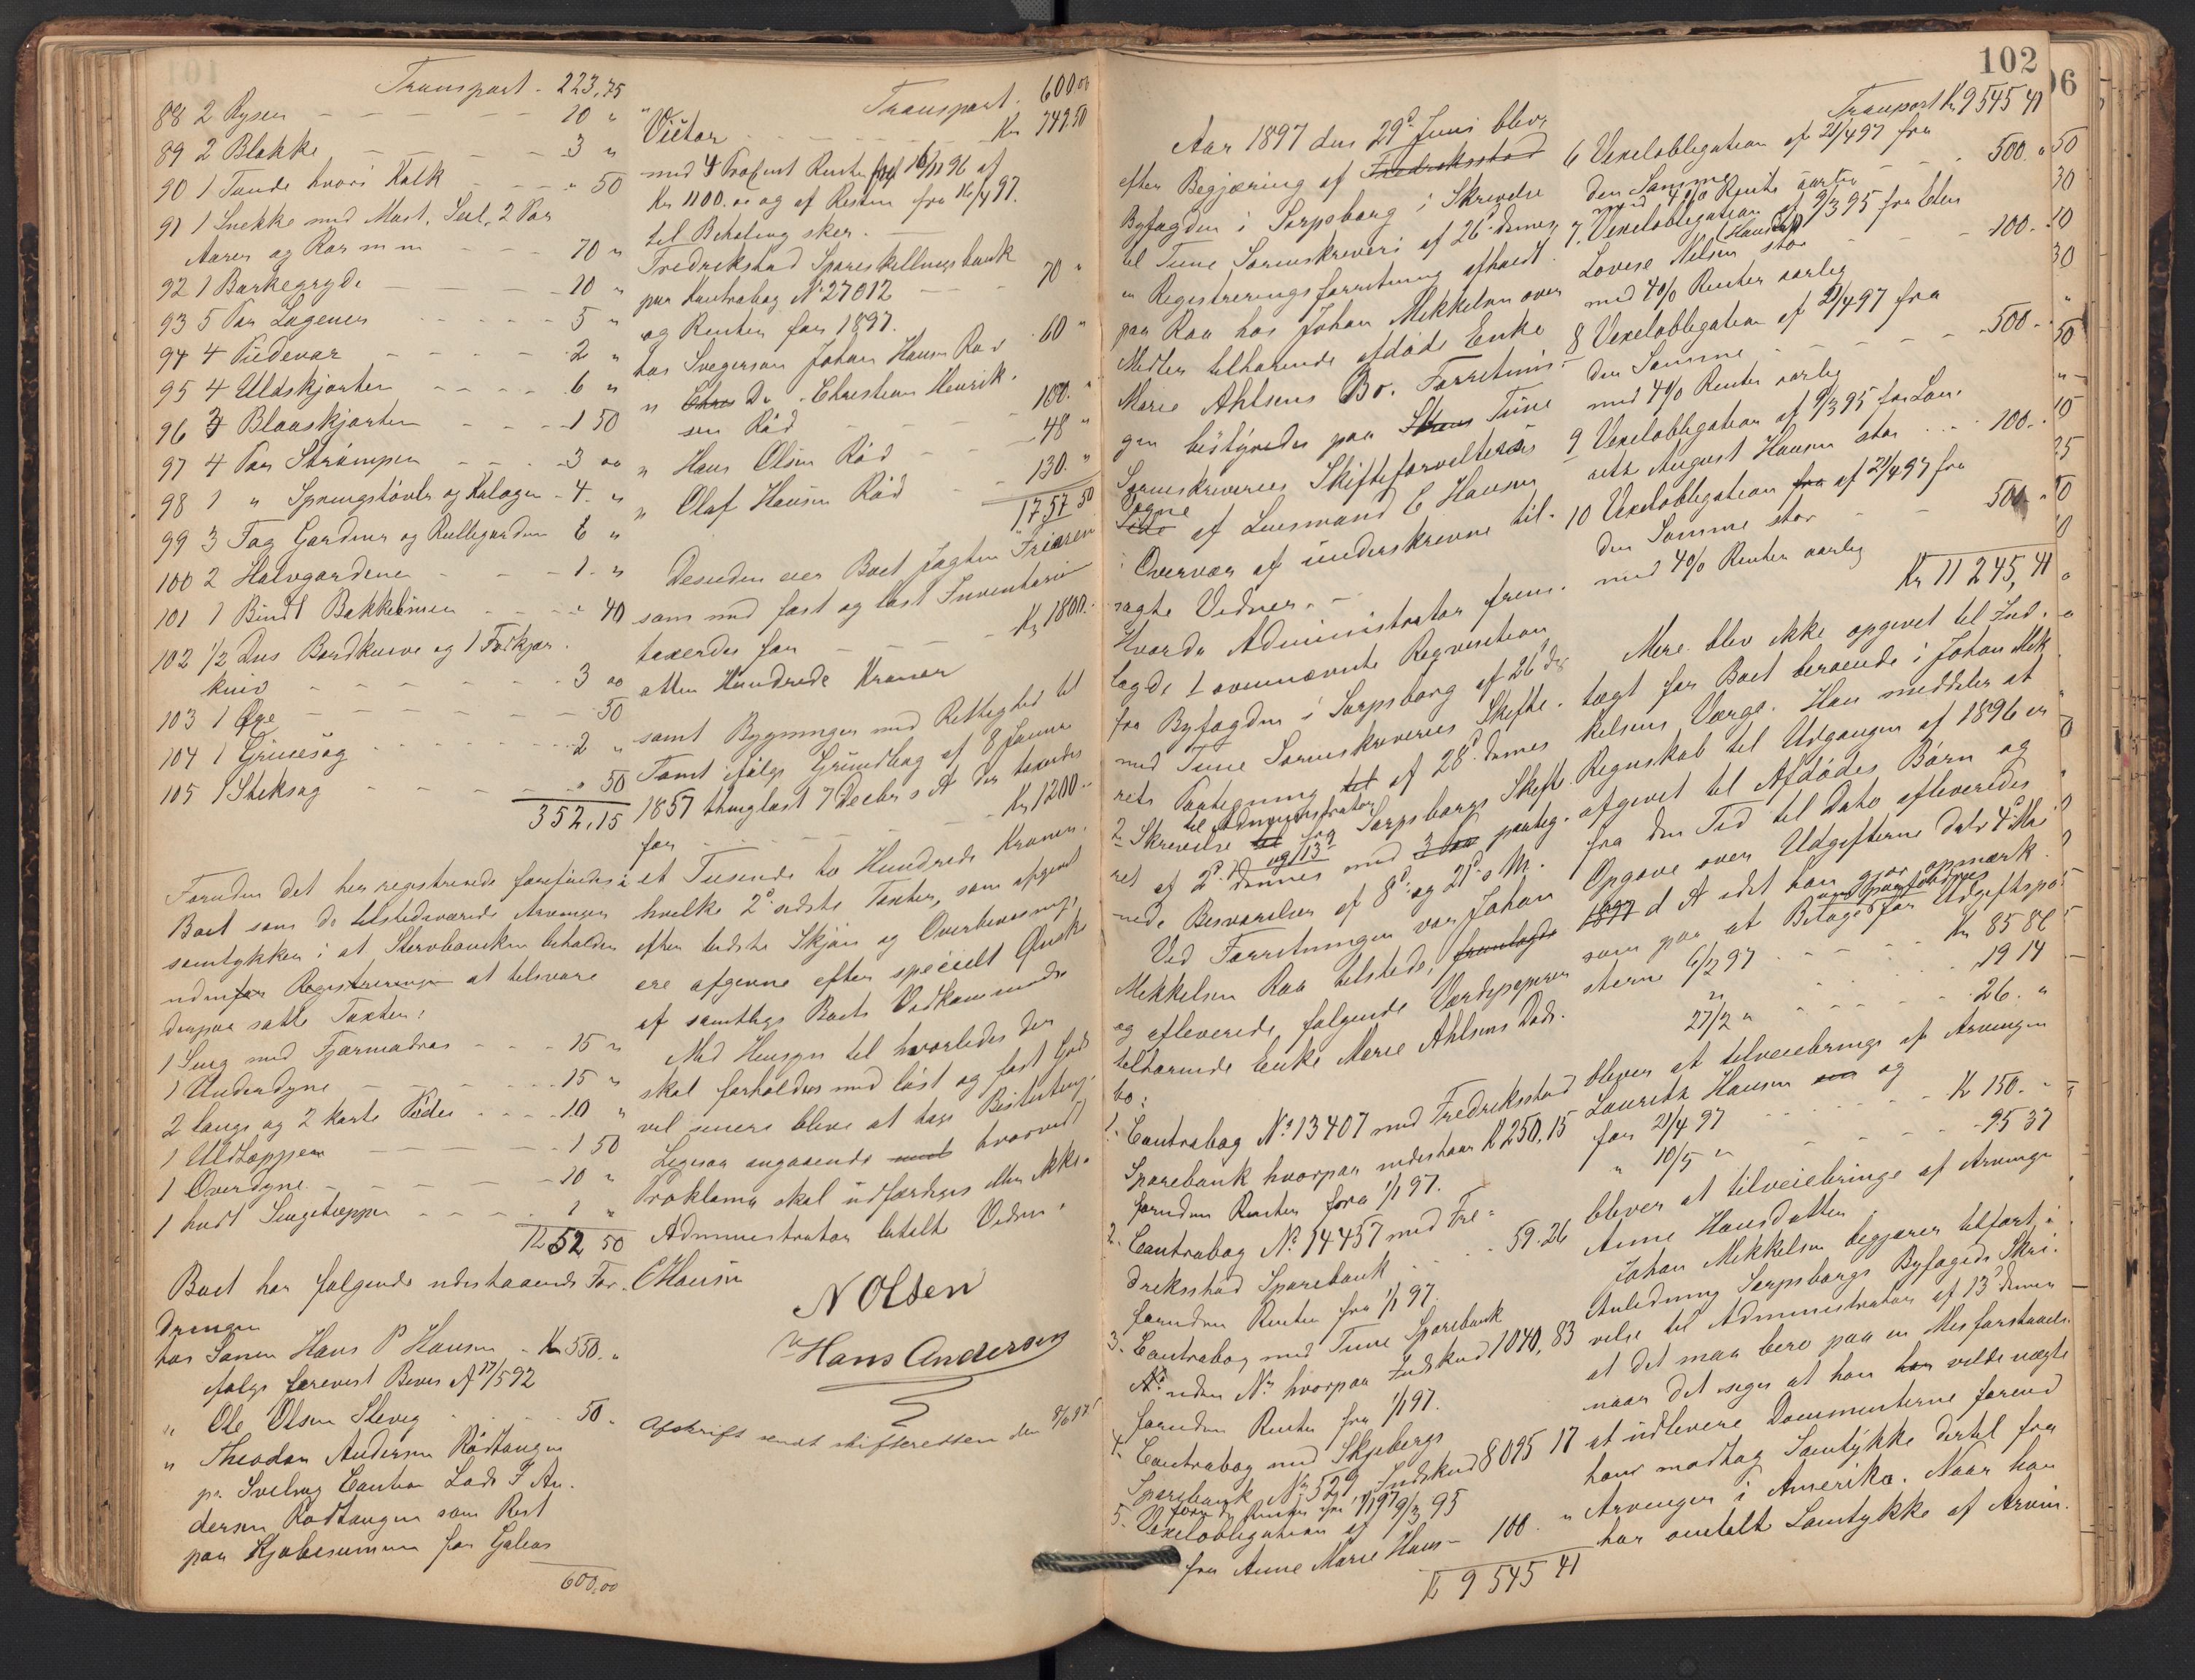 Transport - 223,75
88 2 Ryser - - - - - - 10 "
89 2 Blokke - - - - - 3 "
90 1 Tønde hvori Kalk - - - " 50
91 1 Snekke med Mast, Seil, 2 Par
Aarer og Ror m m - - - 70 "
92 1 Barkegryde - - - - - 10 "
93 5 Par Lagener - - - - - 5 "
94 4 Pudevar - - - - - 2 "
95 4 Uldskjorter - - - - 6 "
96 3 Blaaskjorter - - - - 1 50
97 4 Par Strømper - - - - 3 00
98 1 " Springstøvler og Kalager - 4 "
99 3 Fag Gardiner og Rullegardin 6 "
100 2 Halvgardiner - - - 1 "
101 1 Bundt Bakkeliner - - - " 40
102 1/2 Dus Bordknive og 1 Forkjær
kniv - - - - - - 3 00
103 1 Øxe - - - - - - 50
104 1 Grindsag - - - - - 2 "
105 1 Stiksag - - - - - " 50
352,15
Foruden det her registrerede forefindes i
Boet som de tilstedeværende Arvinger
samtykker i at Stervboenken beholder
udenfor Registreringen at tilsvare
derpaa satte Taxter:
1 Seng med Fjærmadras - - - 15 "
1 Underdyne - - - - 15 "
2 lange og 2 korte Puder - - - 10 "
1 Uldtæppe - - - - - 1 50
1 Overdyne - - - - - 10 "
1 hvidt Sengetæppe - - - 1 "
Kr 52 50
Boet har følgende udestaaende For-
dringer
hos Sønnen Hans P Hansen - Kr 550. "
ifølge forevist Bevis af 17/5 92
" Ole Olsen Sleveg - - - 50 "
" Theodor Andersen Rødtangen
pr. Svelvig Caution Lods I An-
dersen Rødtangen som Rest
paa Kjøbesummen for Galeas
600,00
Transport - 600.00
"Victor - - - - - Kr 749 50
med 4 Procent Renter fra 16/11 96 af
Kr 1100.00 og af Resten fra 16/4 97.
til Betaling sker. -
Fredrikstad Spareskillingsbank
paa Kontrabog No 27012 - - - 70 "
og Renter for 1897.
hos Svigersøn Johan Hansen Rød - 60 "
" Do. Christian Henrik-
sen Rød - - - - - 100. "
" Hans Olsen Rød - - - 48 "
" Olaf Hansen Rød - - - 130. "
1757 50
Desuden eier Boet Jagten "Friaren"
som med fast og løst Inventarie
taxerdes for - - - - Kr 1800.-
atten Hundrede Kroner
samt Bygninger med Rettighed til
Tomt ifølge Grundbog af 8 Janua
1857 thinglæst 7 Decbr s A der taxerdes
for - - - - - - - Kr 1200.-
et Tusende to Hundrede Kroner.
hvilke 2de sidste Taxter, som afgivet
efter bedste Skjøn og Overbevisning,
ere afgivne efter specielt Ønske
af samtlige Boets Vedkommende
Med Hensyn til hvorledes der
skal forholdes med løst og fast Gods
vil senere blive at tage Beslutning.
Ligesaa angaaende hvorvidt
Proklama skal udfærdiges eller ikke.
Administrator betalte Vidner.
C Hansen
N Olsen
Hans Andersen
Afskrift sendt skifteretten den 9/6 97
102
Aar 1897 den 29de Juni blev
efter Begjæring af Fredriksstad
Byfogden i Sarpsborg i Skrivelse
til Tune Sorenskriveri af 26de dennes
en Registreringsforretning afholdt
paa Raa hos Johan Mikkelsen over
Midler tilhørende afdøde Enke
Marie Ahlsens Bo. Forretnin-
gen bestyredes paa Tune
Sorenskriveries Skifteforvalteres
Vegne af Lensmand C Hansen
i Overvær af underskrevne til-
sagte Vidner. -
Hvorda Administrator frem-
lagde 1 ovennævnte Reqvisition
fra Byfogden i Sarpsborg af 26de ds
med Tune Sorenskriveries Skifte-
rets Paategning af 28de dennes
2 Skrivelse til Administrator fra Sarpsborgs Skifte
ret af 2de og 13de dennes med paateg-
nede Besvarelser af 8de og 21de s. M.
Ved Forretningen var Johan
Mikkelsen Raa tilstede, fremlagde
og afleverede følgende Værdipapirer
tilhørende Enke Marie Ahlsens Døds-
bo:
1. Contrabog No 13407 med Fredriksstad
Sparebank hvorpaa indestaar Kr 250,15
foruden Renter fra 1/1 97.
2. Contrabog No 14457 med Fre-
driksstad Sparebank - - - 59.26
foruden Renter fra 1/1 97.
3. Contrabog med Tune Sparebank
uden No hvorpaa Indskud 1040,83
foruden Renter fra 1/1 97.
4. Contrabog med Skjebergs
Sparebank No 529 Indskud 8095 17
foruden Renter fra 1/1 97
5. Vexelobligation af 9/3 95
fra Anne Marie Hans- 100. "
Kr 9545 41
Transport Kr 9545 41
6 Vexelobligation af 21/4 97 fra
den Samme - - - 500. "
med 4% Rente aarlig
7. Vexelobligation af 9/3 95 fra Edles
Lovise Nilsen (Hansen) stor - - - 100. -
med 4% Renter aarlig
8 Vexelobligation af 21/4 97 fra
den Samme - - - - - 500. -
med 4% Renter aarlig
9 Vexelobligation af 9/3 95 fra Lau-
rits August Hansen stor - - - 100. -
10 Vexelobligation fra af 21/4 97 fra
den Samme stor - - - 500 "
med 4% Renter aarlig
Kr 11245,41
Mere blev ikke opgivet til Ind-
tægt for Boet beroende i Johan Mik
kelsens Værge. Han meddeler at
Regnskab til Udgangen af 1896 er
afgivet til Afdødes Børn og
fra den Tid til Dato afleveredes
Opgave over Udgifterne Datr 4de Mai
1897 d A idet han gjør opmærk
som paa at Bilager for Udgiftspo-
sterne 6/2 97 - - - - Kr 85 86
" - - - - 19 14
27/2 " - - - - 26. "
bliver at tilveiebringe af Arvingen
Lauritz Hansen og
for 21/4 97 - - - - Kr 150. -
" 10/5 " - - - - 95 37
bliver at tilveiebringe af Arvinge
Anne Hansdatter.
Johan Mikkelsen begjærer tilført i
Anledning Sarpsborgs Byfogeds Skri-
velse til Administrator af 13de dennes
at det maa bero paa en Misforstaaelse
naar det siges at han vilde nægte
at udlevere Documenterne forend
han modtog Samtykke dertil fra
Arvinger i Amerika. Naar han
har omtalt Samtykke af Arvin-